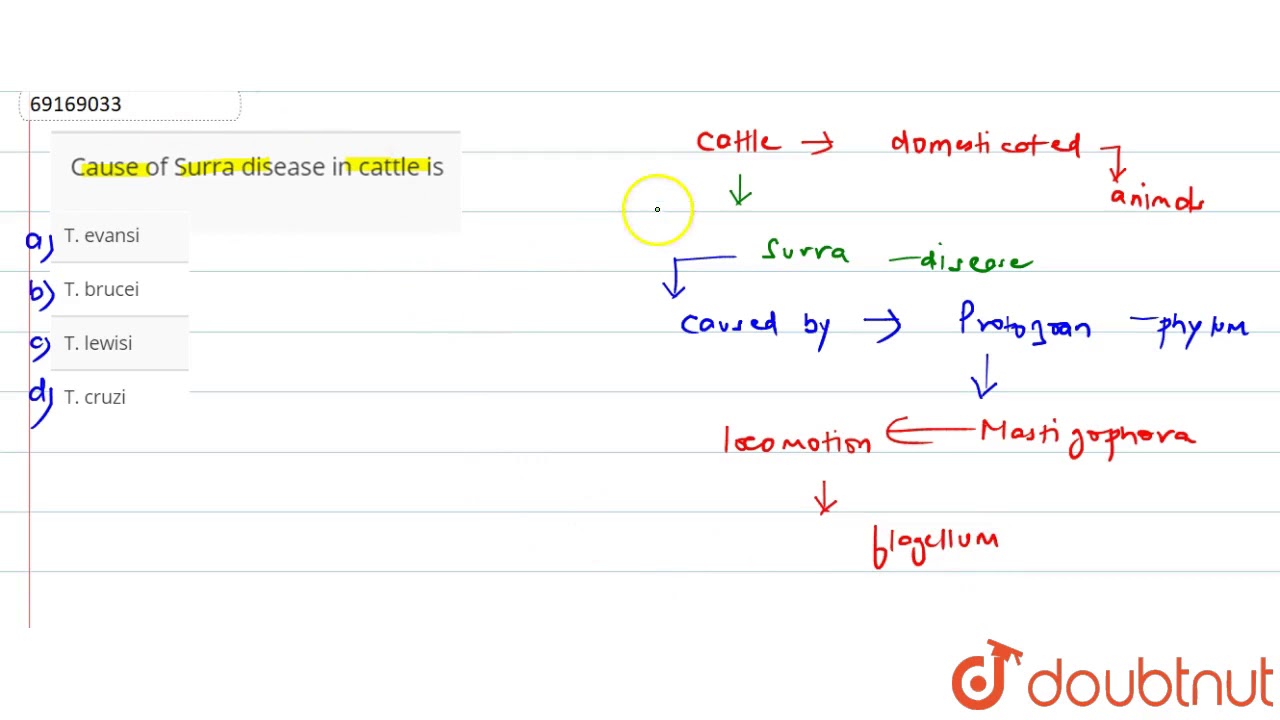 69169033
Cause of Surra disease in cattle is
a) T. evansi
b) T. brucei
c) T. lewisi
d) T. cruzi
Cattle → domesticated
animals
Surra - disease
Caused by → Protozoan - phylum
locomotion Mastigophora
flagellum
doubtnut